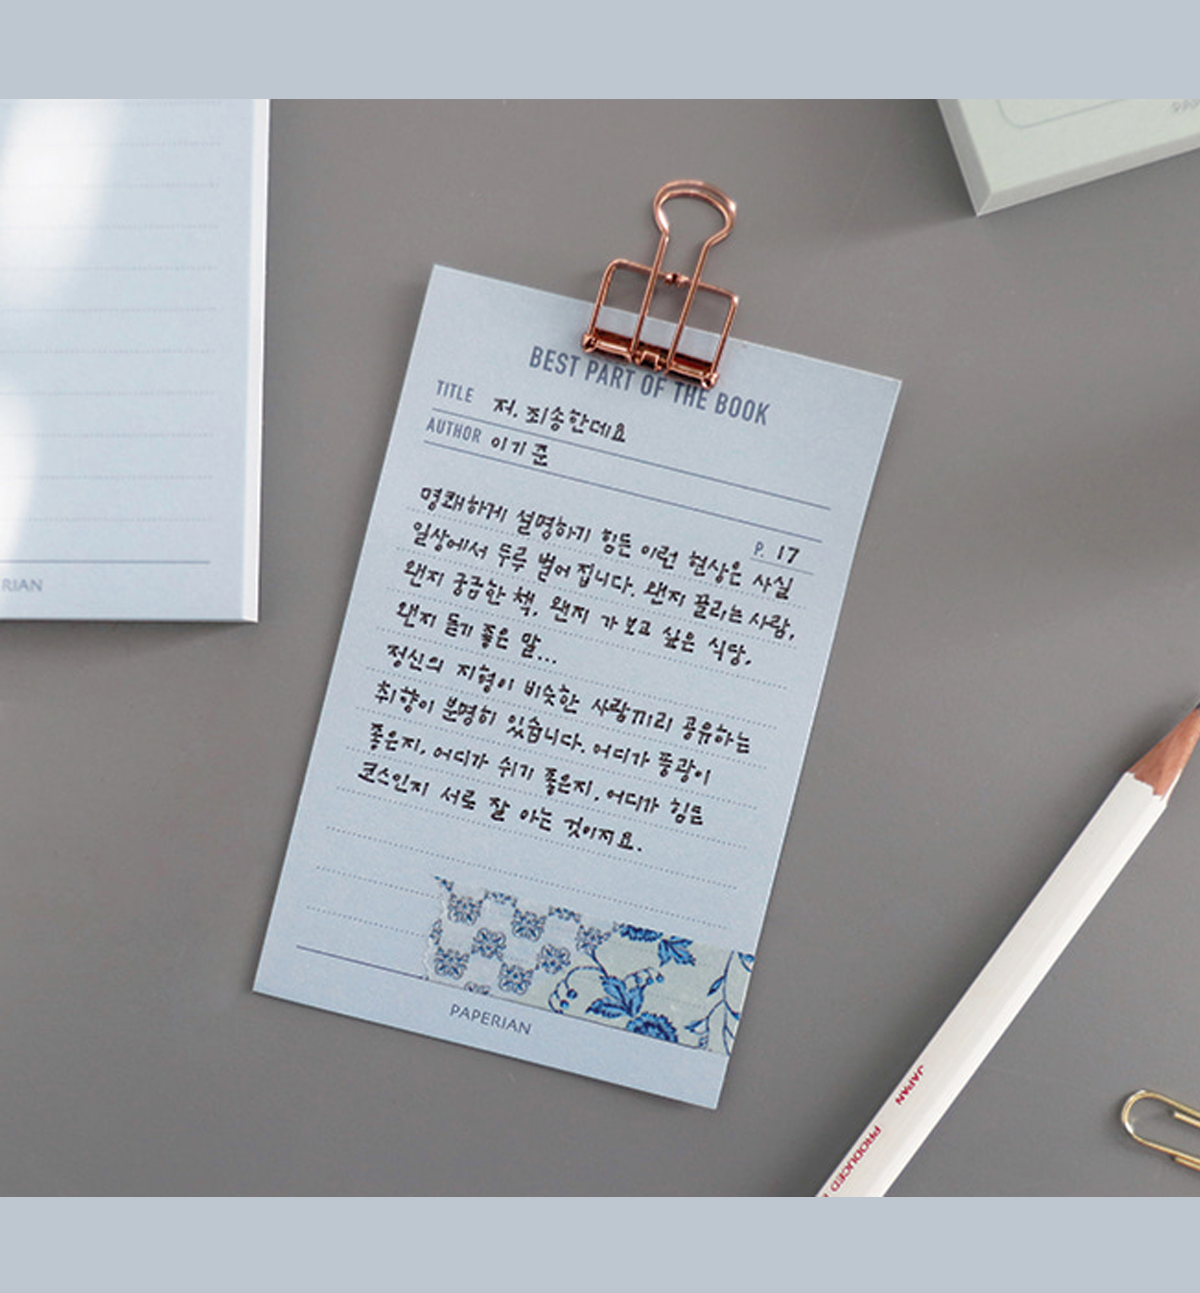 BEST PART OF THE BOOK
TITLE 저, 죄송한데요
AUTHOR 이기준
P. 17
명쾌하게 설명하기 힘든 이런 현상은 사실
일상에서 두루 벌어집니다. 왠지 끌리는 사람,
왠지 궁금한 책, 왠지 가보고 싶은 식당,
왠지 듣기 좋은 말...
정신의 지형이 비슷한 사람끼리 공유하는
취향이 분명히 있습니다. 어디가 풍광이
좋은지, 어디가 쉬기 좋은지, 어디가 힘든
코스인지 서로 잘 아는 것이지요.
PAPERIAN
RIAN
JAPAN
PRODUCED